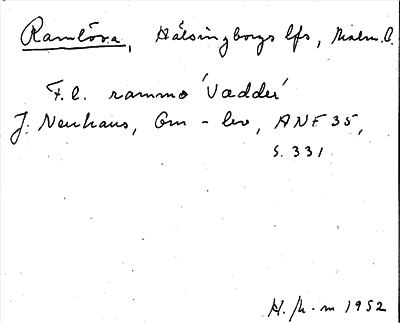 Ramlösa, Hälsingborgs lfs, Malm. l.
F.l. rammo 'Vædder'
J. Neuhaus, Om - lev, ANF 35,
s. 331
1952